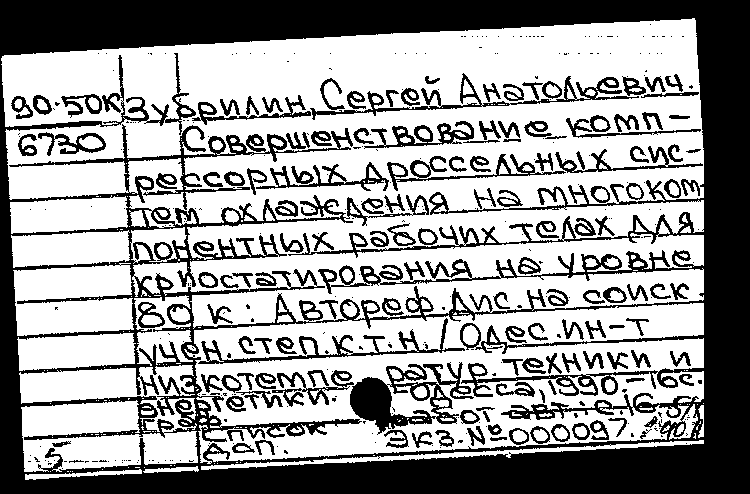 90-50К Зубрилин, Сергей Анатольевич.
6730 Совершенствование комп-
рессорных дроссельных сис-
тем охлаждения на многоком
понентных рабочих телах для
криостатирования на уровне
80 К: Автореф. дис. на соиск.
учен. степ. к.т.н. / Одес. ин-т
низкотемпе ратур. техники и
энергетики. - Одесса, 1990. - 16с.
граф. Список работ авт.: с.16
ДСП. Экз. № 000097.
5